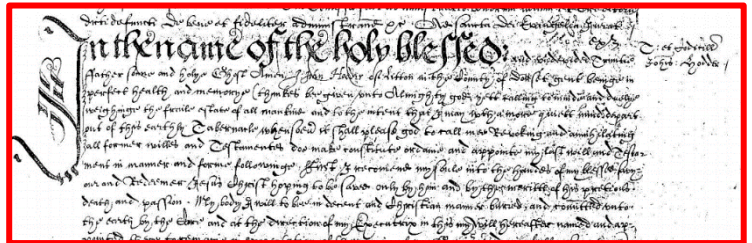 defunct de bene et fideliter administrand Ad sancta dei Evangelia
In the name of the holy blessed
and undevided Trinitie
T: et Codicill
John: Hodder
ffather sonne and holye Ghost Amen I John Hoder of in the County of dorset gent beinge in
perfect health and memorye (thankes be given unto Almighty god) yett calling to minde and duelie
weighinge the fraile estate of all mankine and to the intent that I may with a more quiett minde depart
out of this earthly Tabernacle when soever it shall please god to call mee Revoking and anihilating
all former willes and Testamentes doe make constitute ordaine and appointe my last will and Testa
ment in manner and forme followinge. ffirst I recomend my soule into the handes of my blessed savy
our and Redeemer Jesus Christ hoping to be saved only by him and by the merritts of his pretious
death and passion. My body I will to bee in decent and Christian manner buried and comitted unto
the earth by the Care and at the direction of my Executrix in this my will hereafter named and ap